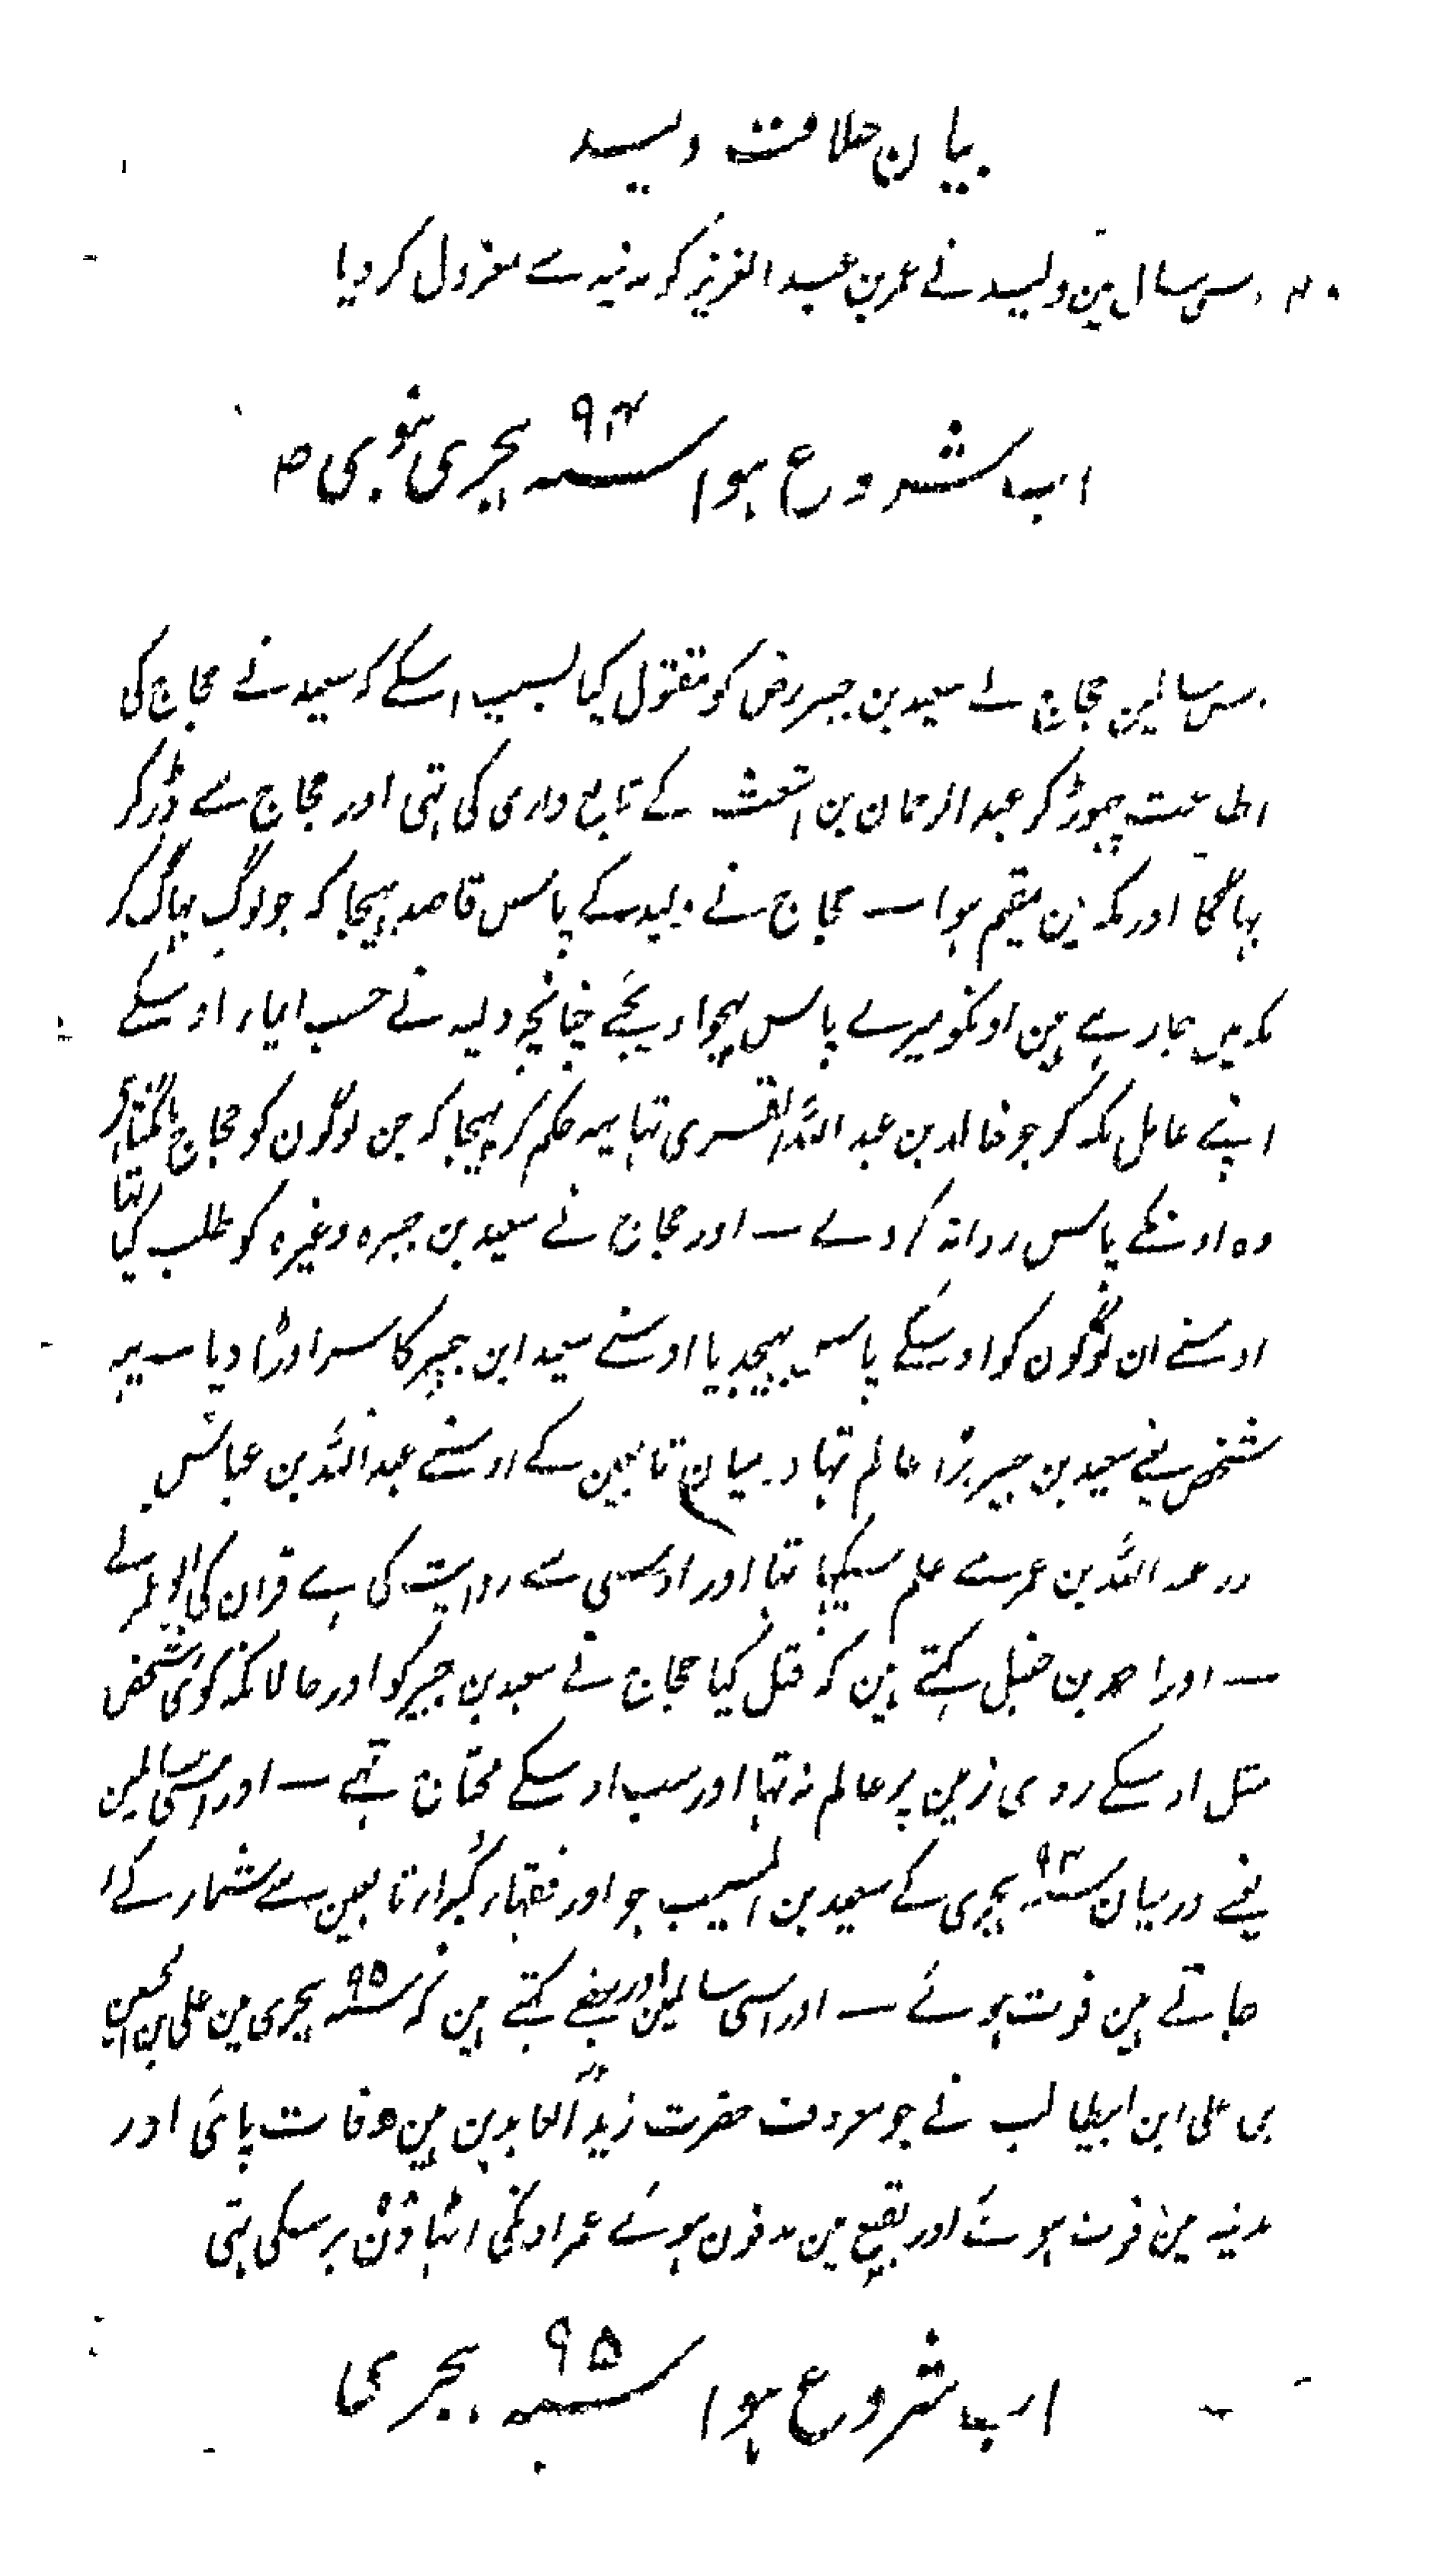 بیان خلافت ولید
اسی سال مین ولید نے عمر بن عبد العزیز کو مدینہ سے معزول کر دیا
اب شروع ہوا سنہ ۹۴ ہجری نبوی ص
اس سالمین حجاج نے سعید بن جبیر رض کو مقتول کیا بسبب اسکے کہ سعید نے حجاج کی
اطاعت چہوڑ کر عبد الرحمان بن اشعث کے تابع داری کی تہی اور حجاج سے ڈر کر
بہاگا اور مکہ مین مقیم ہوا — حجاج نے ولید کے پاس قاصد بہیجا کہ جو لوگ بہاگ کر
مکہ میں جا رہے ہین اونکو میرے پاس بہجوا دیجئے چنانچہ ولید نے حسب ایماء اوسکے
اپنے عامل مکہ کو جو خالد بن عبد اللہ القسری تہا یہہ حکم کر بہیجا کہ جن لوگون کو حجاج مانگتا ہی
وہ اونکے پاس روانہ کر دے — اور حجاج نے سعید بن جبیرہ وغیرہ کو طلب کیا تہا
اوسنے ان لوگون کو اوسیکے پاس بہیجدیا اوسنے سعید ابن جبیر کا سر اوڑا دیا — یہہ
شخص یعنے سعید بن جبیر بڑا عالم تہا درمیان تابعین کے اوسنے عبد اللہ بن عباس
اور عبد اللہ بن عمر سے علم سیکہا تہا اور اوسی سے روایت کی ہے قران کی ابو عمر نے
— اور احمد بن حنبل کہتے ہین کہ قتل کیا حجاج نے سعید بن جبیر کو اور حالانکہ کوئی شخص
مثل اوسکے روی زمین پر عالم نہ تہا اور سب اوسکے محتاج تہے — اور اسی سالمین
یعنے درمیان سنہ ۹۴ ہجری کے سعید بن المسیب جو اور فقہاء کبراء تابعین سے شمار کئے
جاتے ہین فوت ہوئے — اور اسی سالمین اور بعضے کہتے ہین کہ سنہ ۹۵ ہجری مین علی بن الحسین
بن علی ابن ابیطالب نے جو معروف حضرت زین العابدین ہین وفات پائی اور
مدینہ مین فوت ہوئے اور بقیع مین مدفون ہوئے عمر اونکی اٹہاون برسکی تہی
اب شروع ہوا سنہ ۹۵ ہجری